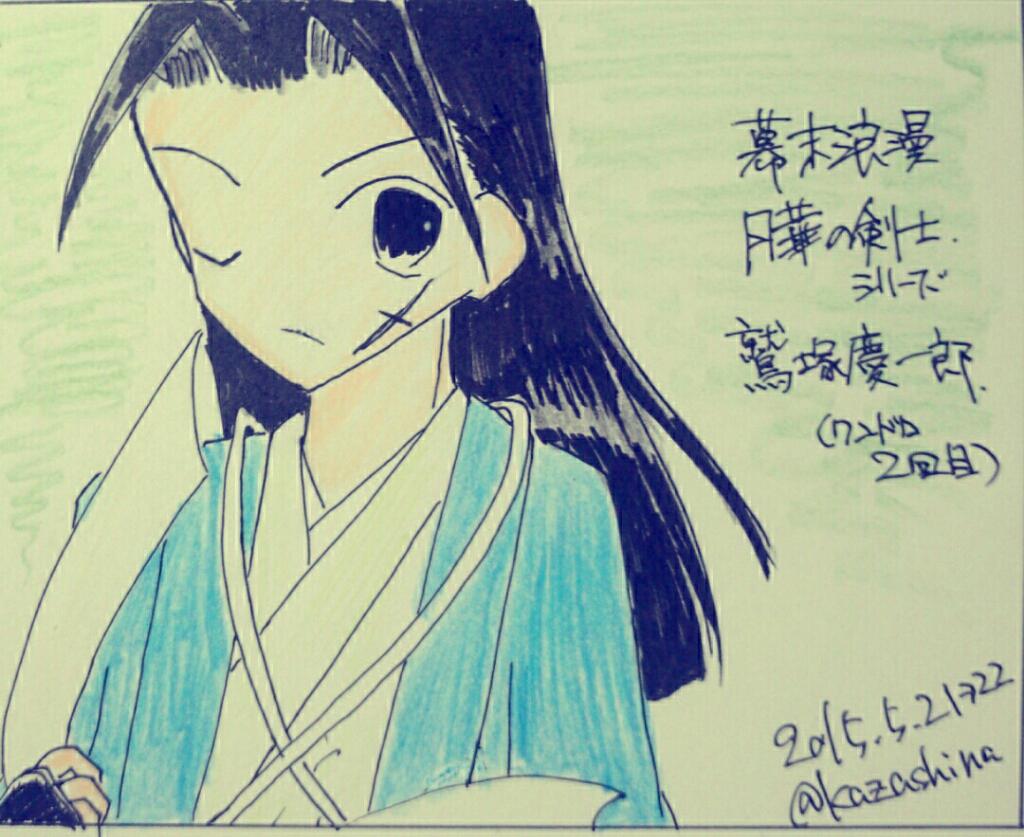 幕末浪漫
月華の剣士.
シリーズ
鷲塚慶一郎.
(ワンドロ
2回目)
2015.5.21722
@kazashina